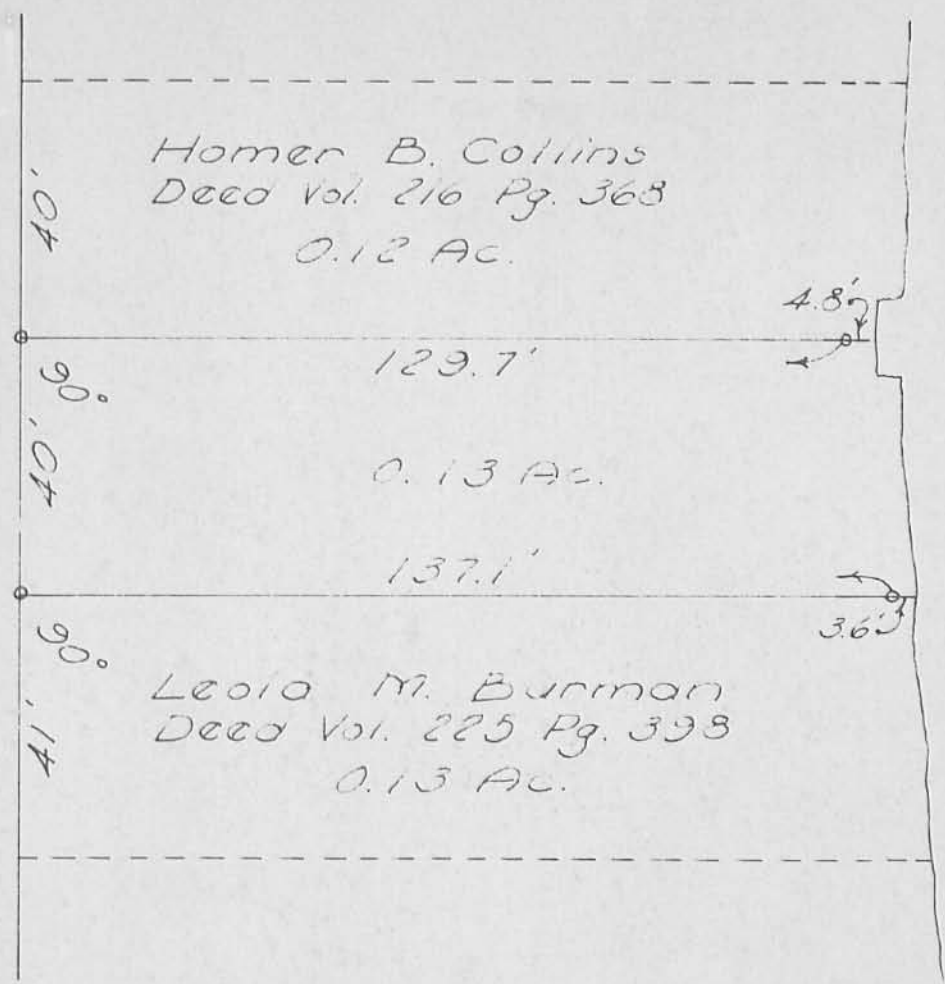 Homer B. Collins
Deed Vol. 216 Pg. 368
0.12 Ac.
40'
4.8'
129.7'
90°
40'
0.13 Ac.
137.1'
3.6'
90°
Leola M. Burman
Deed Vol. 225 Pg. 398
0.13 Ac.
41'